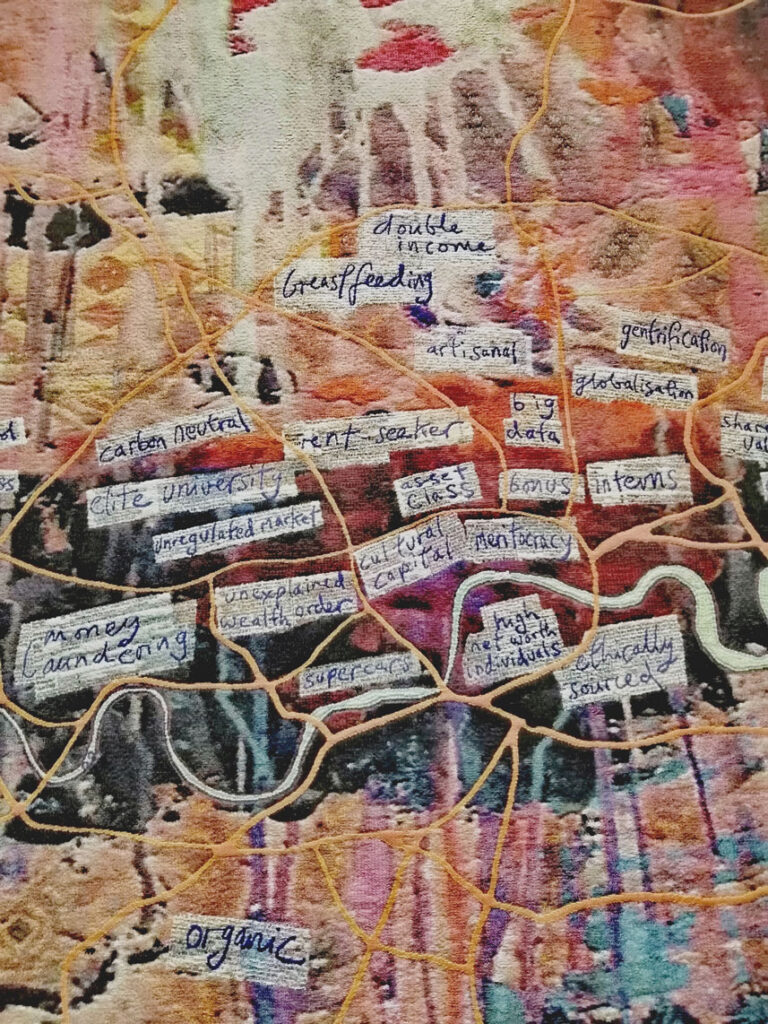 double
income
breastfeeding
artisanal
gentrification
globalisation
big
data
carbon neutral
rent-seeker
elite university
asset
class
bonus
interns
unregulated market
cultural
capital
meritocracy
unexplained
wealth order
money
laundering
high
net worth
individuals
supercars
ethically
sourced
organic